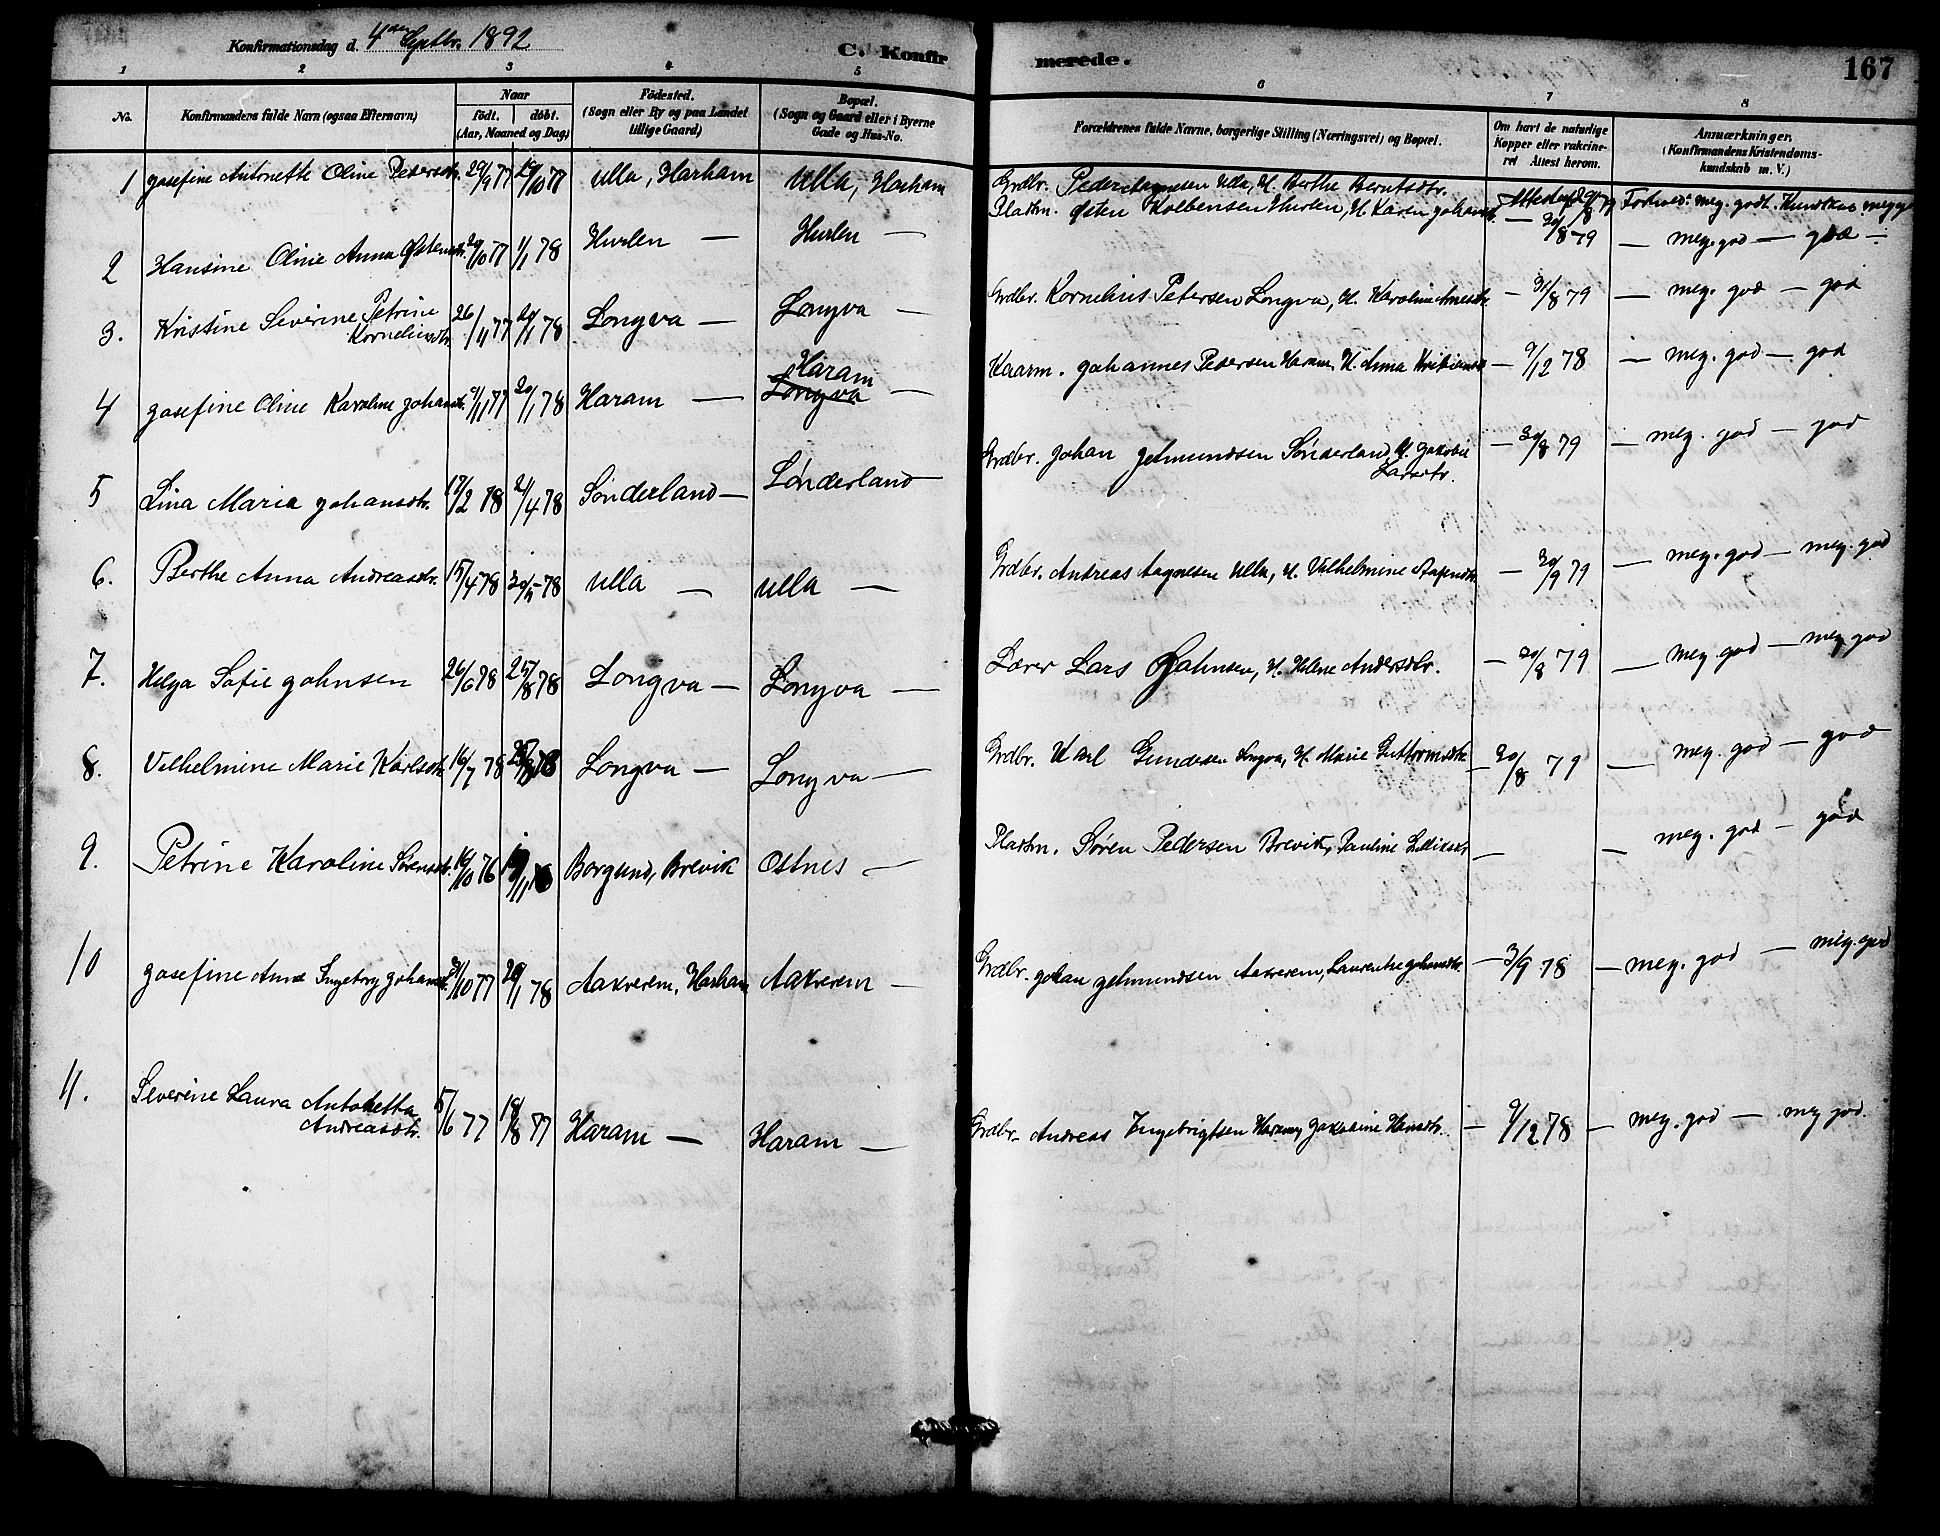 Konfirmationsdag d. 4de Septbr. 1892 C. Konfirmerede. 167
1 2 3 4 5 6 7 8
No. Konfirmandens fulde Navn (ogsaa Efternavn) Naar født. døbt. (Aar, Maaned og Dag) Fødested. (Sogn eller By og paa Landet tillige Gaard) Bopæl. (Sogn og Gaard eller i Byerne Gade og Hus-No. Forældrenes fulde Navne, borgerlige Stilling (Næringsvei) og Bopæl. Om havt de naturlige Kopper eller vakcineret Attest herom. Anmærkninger. (Konfirmandens Kristendomskundskab m. V.)
1 Josefine Antonette Oline Pedersdtr. 29/9 77 /10 77 Ulla, Harham Ulla, Harham Grdbr. Peder Ulla, H. Berthe Berntsdtr. Forhold: meg. godt.
2 Hansine Oline Anna Østensdtr. /10 77 1/1 78 Hurlen — Hurlen — Pladsm. Østen Kolbensen Hurlen, H. Karen — /8 79 — meg. god — god
3. Kristine Severine Petrine Korneliusdtr. 26/11 77 20/1 78 Longva — Longva — Grdbr. Kornelius Petersen Longva, H. Karoline — /8 79 — meg. god — god
4 Josefine Oline Karoline Johansdtr. 9/11 77 20/1 78 Haram — Longva Haram — Johannes Pedersen Haram, H. Anna — 9/12 78 — meg. god — god
5 Lina Maria Johansdtr. 17/2 78 21/4 78 Sønderland — Sønderland — Grdbr. Johan Jetmundsen Sønderland, H. Jakobie Larsdtr. — 30/8 79 — meg. god — god
6. Berthe Anna Andreasdtr. 15/4 78 30/5 78 Ulla — Ulla — Grdbr. Andreas Aagesen Ulla, H. Vilhelmine — 30/9 79 — meg. god — meg. god
7. Helga Sofie Johnsen 26/6 78 25/8 78 Longva — Longva — Lærer Lars Johnsen, H. Helene Andersdtr. — 30/8 79 — meg god — meg god
8. Vilhelmine Marie Karlsdtr. 16/7 78 25/8 78 Longva — Longva — Grdbr. Karl Gundersen Longva, H. Marie Guttormsdtr. — 30/8 79 — meg. god — god
9. Petrine Karoline Sørensdtr. 16/10 76 /11 76 Borgund, Brevik Ostnes — Pladsm. Søren Pedersen Brevik, Pauline — — meg. god — god
10 Josefine Anna Ingeborg Johansdtr. /10 77 20/1 78 Aakverem, Harham Aakrerem — Grdbr. Johan Jetmundsen Aakrerem, Laurentse Johansdtr. — 3/9 78 — meg. god — meg. god
11. Severine Laura Antonetta Andreasdtr. 5/6 77 19/8 77 Haram — Haram — Grdbr. Andreas Ingebrigtsen Haram, Jakobine Hansdtr. — 9/12 78 — meg. god — meg god.